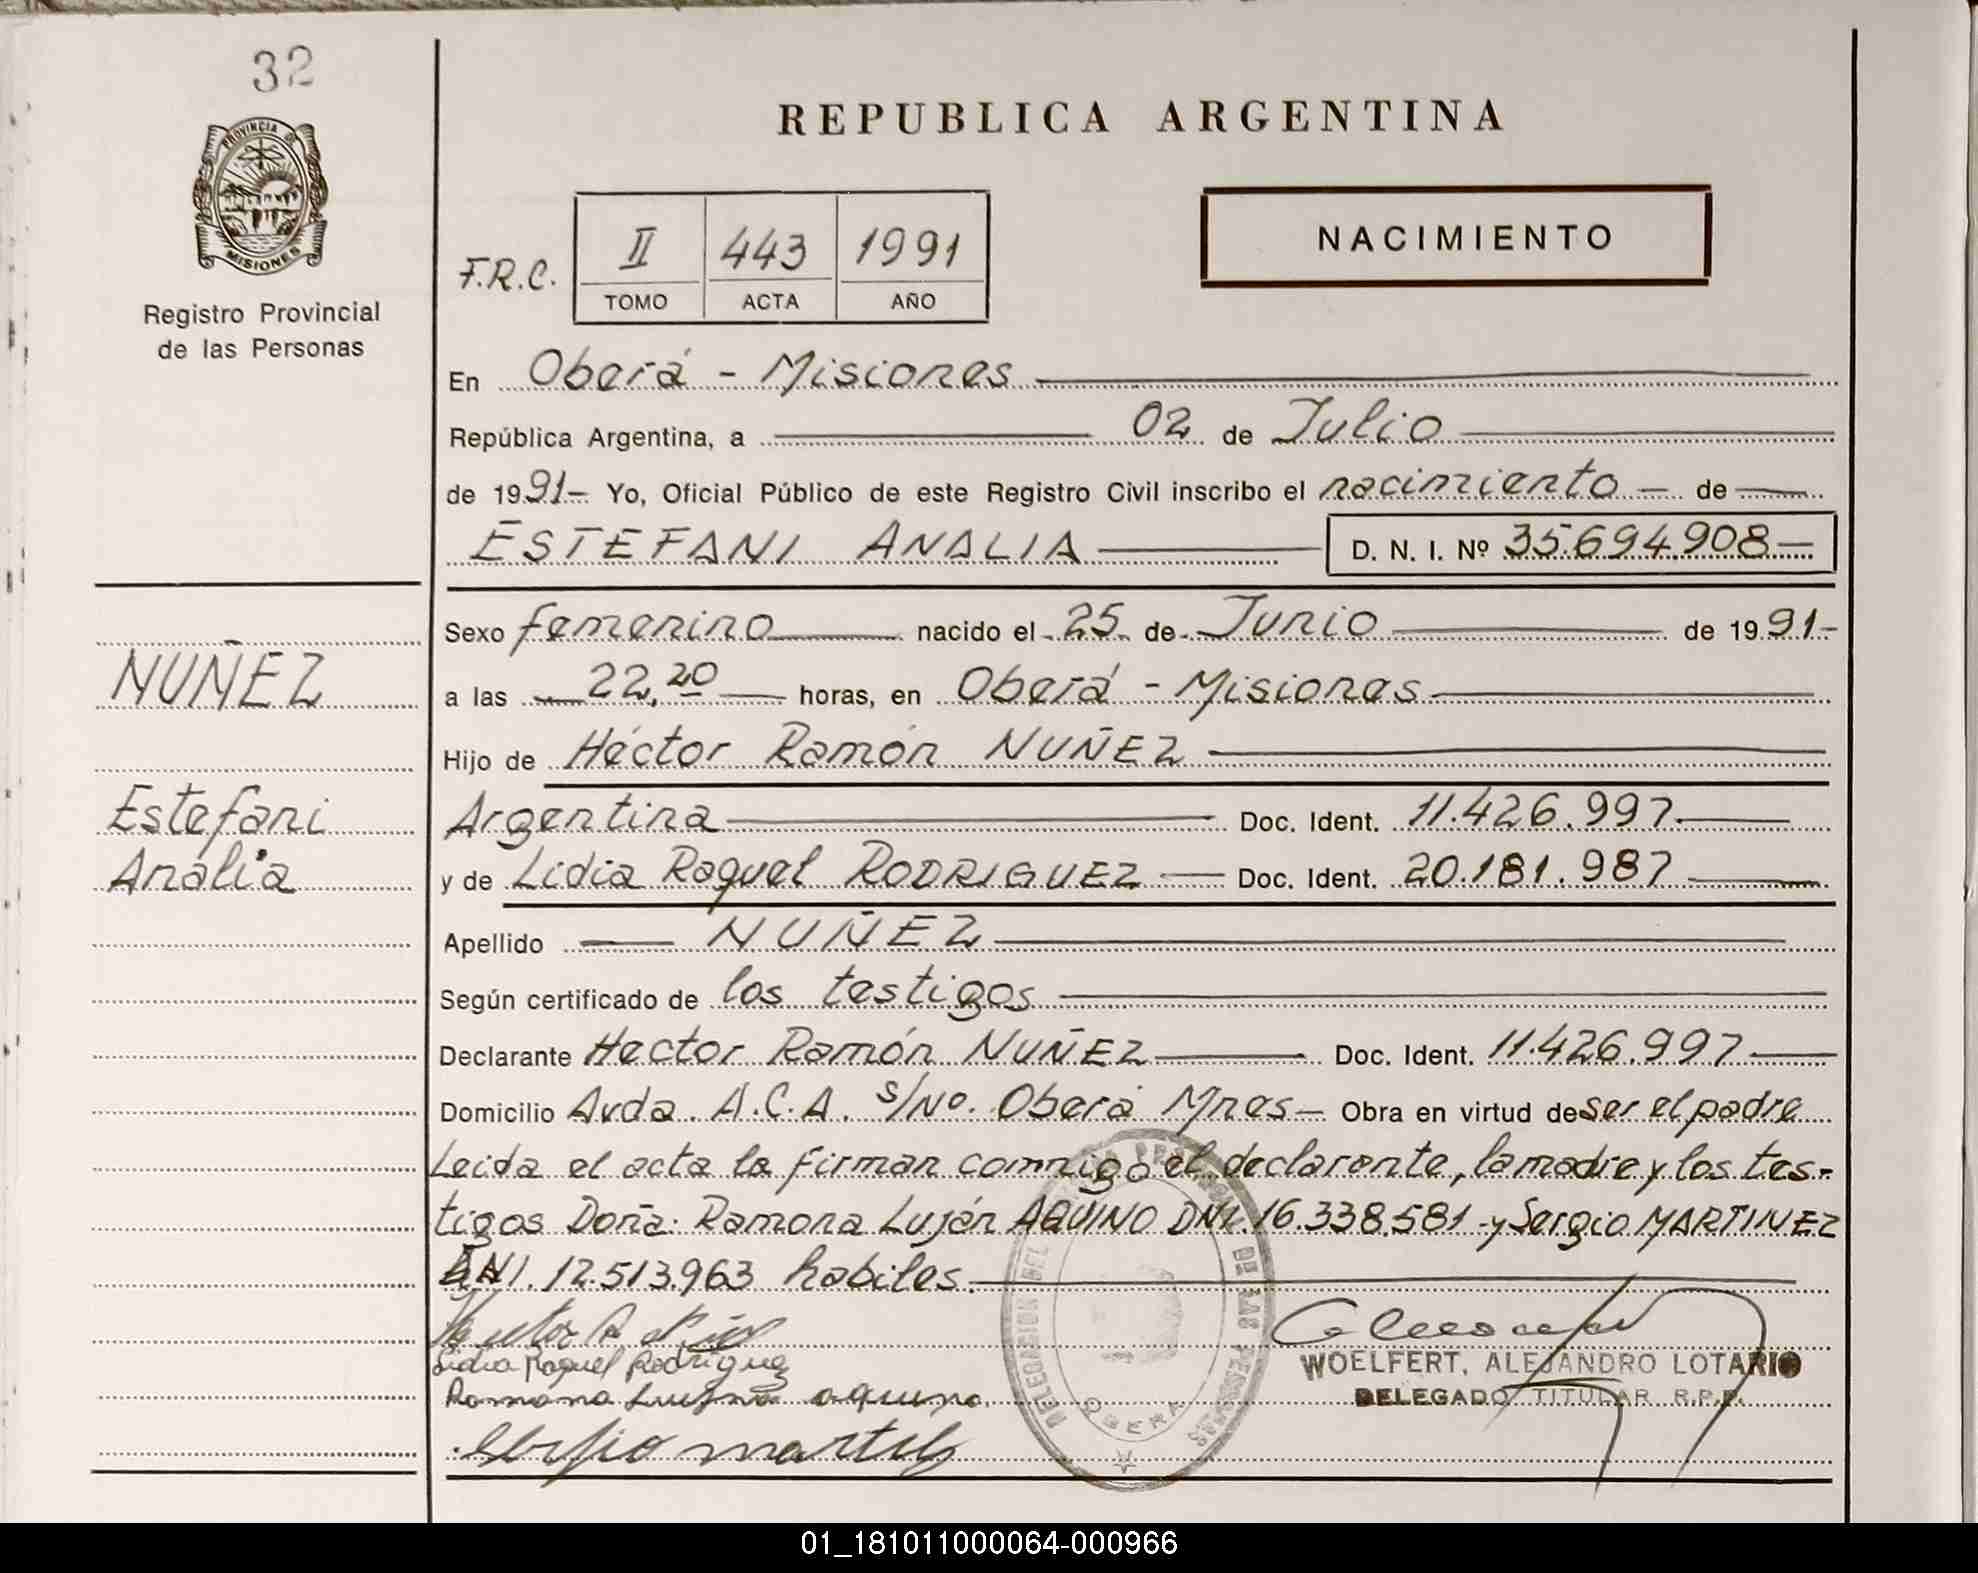 32
REPUBLICA ARGENTINA
PROVINCIA DE
MISIONES
Registro Provincial
de las Personas
F.R.C.
II 443 1991
TOMO ACTA AÑO
NACIMIENTO
En Oberá - Misiones
República Argentina, a 02 de Julio
de 1991- Yo, Oficial Público de este Registro Civil inscribo el nacimiento - de
ESTEFANI ANALIA D. N. I. Nº 35.694.908-
Sexo femenino nacido el 25 de Junio de 1991-
NUÑEZ
a las 22,20 horas, en Oberá - Misiones
Hijo de Héctor Ramón NUÑEZ
Estefani
Analia
Argentina Doc. Ident. 11.426.997
y de Lidia Raquel RODRIGUEZ Doc. Ident. 20.181.987
Apellido NUÑEZ
Según certificado de los testigos
Declarante Hector Ramón NUÑEZ Doc. Ident. 11.426.997
Domicilio Avda. A.C.A. s/No. Oberá Mnes- Obra en virtud de ser el padre
Leida el acta la firman conmigo el declarante, la madre y los tes-
tigos Doña: Ramona Luján AQUINO DNI. 16.338.581 - y Sergio MARTINEZ
DNI. 12.513.963 habiles.
Lidia Raquel Rodriguez
WOELFERT, ALEJANDRO LOTARIO
DELEGADO TITULAR R.P.P.
Ramona Lujan aquino
DELEGACION DEL DE LAS PERSONAS
OBERA
01_181011000064-000966